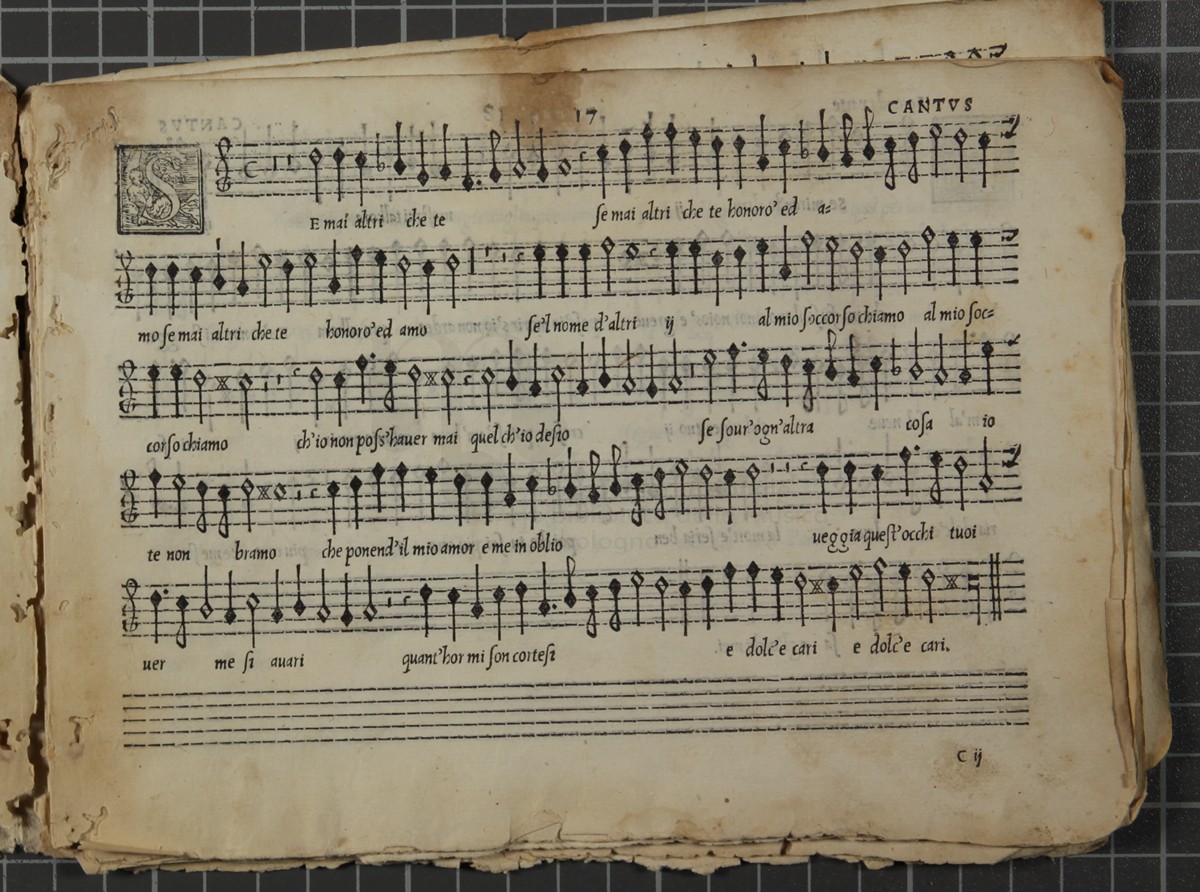 17 CANTVS
SE mai altri che te ſe mai altri che te honoro' ed a=
mo ſe mai altri che te honoro' ed amo ſe'l nome d'altri ij al mio ſoccorſo chiamo al mio ſoc=
corſo chiamo ch'io non poſs'hauer mai quel ch'io deſio ſe ſour'ogn'altra coſa io
te non bramo che ponend'il mio amor e me in oblio ueggia queſt'occhi tuoi
uer me ſi auari quant'hor mi ſon corteſi e dolc'e cari e dolc'e cari.
C ij